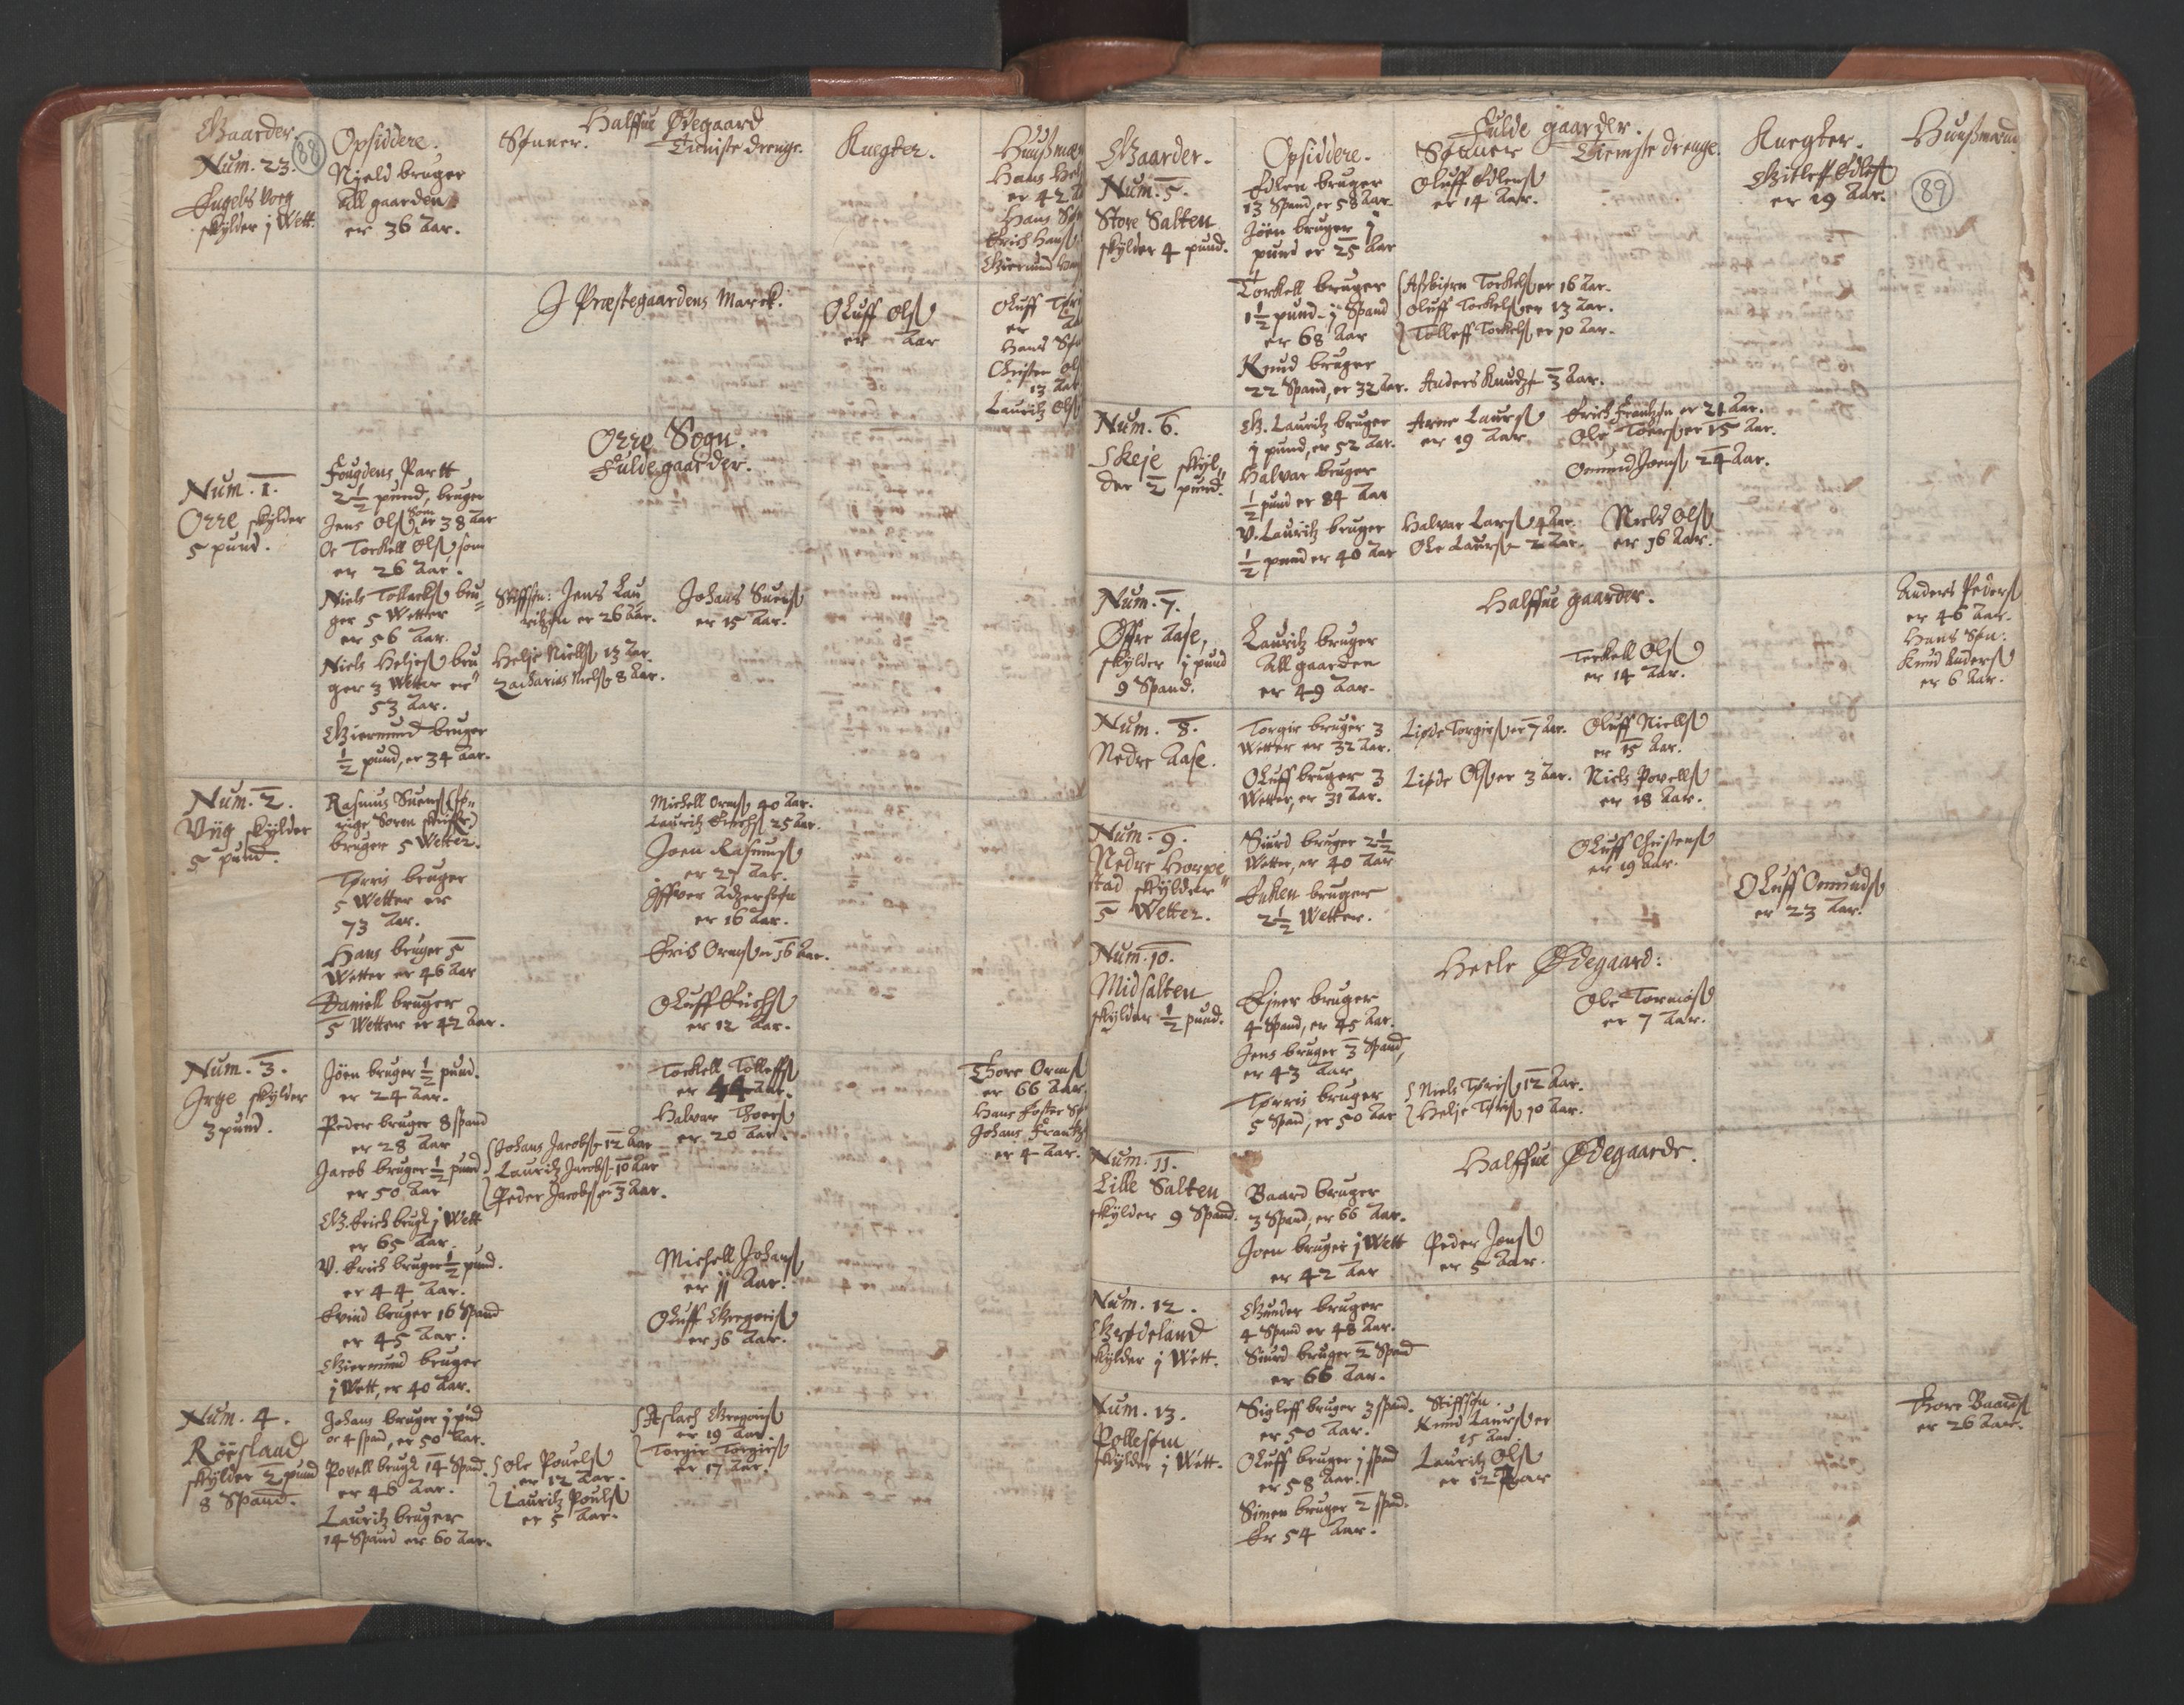 Halffue Ødegaard
Gaarder.
88
Opsiddere.
Sønner.
Tieniste drenge.
Knegter.
Huußmæn
Num. 23.
Engelsvoeg
skylder j Wett.
Njeld bruger
All gaarden
er 36 Aar.
Hans
er 42
Hans Sø
Erich Hans
Giermund
J Præstegaardens Marck.
Oluff Olß
er Aar
Oluff
er
Hans Søn
Christen Ol
13 Aar
Lauritz Olß
Orre Sogn.
Fulde gaarder.
Num. 1.
Orre skylder
5 pund.
Fougdens Partt
2½ pund, bruger
Jens Olß som er 38 Aar
Oc Torckell Olß, som
er 26 Aar.
Niels Tollackß bru
ger 5 Wetter
er 56 Aar.
Stiffsøn: Jens Lau
ritzsøn er 26 Aar.
Johans Suenß
er 15 Aar.
Niels Heljeß bru
ger 3 Wetter er
53 Aar.
Helje Nielß 13 Aar.
Zacharias Nielß 8 Aar.
Giermund bruger
½ pund, er 34 Aar.
Num. 2.
Viig skylder
5 pund.
Rasmus Suenß (for
rige Soren skriffr)
bruger 5 Wetter.
Michell Ormß 40 Aar.
Lauritz Erichß 25 Aar.
Joen Rasmusß
er 27 Aar.
Tørris bruger
5 Wetter er
73 Aar.
Iffver Adzersøn
er 16 Aar.
Hans bruger 5
Wetter er 46 Aar
Erich Ormsøn 36 Aar.
Daniell bruger
5 Wetter er 42 Aar.
Oluff Erichß
er 12 Aar.
Num. 3.
Erge skylder
3 pund.
Jöen bruger ½ pund.
er 24 Aar.
Torkell Tolleffß
er 44 Aar.
Thore Ormß
er 66 Aar.
Peder bruger 8 spand
er 28 Aar
Halvar Thoerß
er 20 Aar.
Hans foster Sø
Johans Frantz
er 4 Aar.
Jacob bruger ½ pund
er 50 Aar
Johans Jacobß 12 Aar
Lauritz Jacobß 10 Aar
Peder Jacobß er 3 Aar.
G. Erich brugr j Wett
er 65 Aar.
V. Erich bruger ½ pund.
er 44 Aar.
Michell Johanß
er jj Aar.
Evind bruger 16 Spand
er 45 Aar.
Oluff Gregoriß
er 36 Aar.
Giermund bruger
j Wett, er 40 Aar.
Num. 4.
Röesland
skylder 2 pund
8 Spand.
Johans bruger j pud
oc 4 spand, er 50 Aar.
Aslach Gregoriß
er 19 Aar.
Torgir Torgirß
er 17 Aar.
Povell brugr 14 Spand.
er 46 Aar.
Ole Pouelß
er 12 Aar.
Lauritz Poulß
er 5 Aar.
Lauritz bruger
14 Spand er 60 Aar.
Fulde gaarder.
Gaarder.
Opsiddere.
Sønner
Tieniste drenge.
Knegter.
Huußmænd
89
Num. 5.
Store Salten
skylder 4 pund.
Edlen bruger
13 Spand, er 58 Aar.
Oluff Edlenß
er 14 Aar.
Gitleff Edleß
er 29 Aar.
Jöen bruger j
pund er 25 Aar
Torkell bruger
1½ pund j Spand
er 68 Aar
Asbiørn Torkelß er 16 Aar.
Oluff Torkelß er 13 Aar.
Tolleff Torkelß er 10 Aar.
Knud bruger
22 Spand, er 32 Aar.
Anders Knudzß 3 Aar.
Num. 6.
Skeje skyl
der 2 pund.
G. Lauritz bruger
j pund, er 52 Aar.
Arne Laurß
er 19 Aar.
Erich Frantzsøn er 21 Aar.
Ole Toerß er 15 Aar.
Halvar bruger
½ pund er 84 Aar
Omund Joenß 24 Aar.
V. Lauritz bruger
½ pund er 46 Aar
Halvar Larß 4 Aar.
Ole Laurß 2 Aar.
Niels Olß
er 36 Aar.
Halffue gaarder.
Num. 7.
Øffre Aase,
skylder j pund
9 Spand.
Lauritz bruger
All gaarden
er 49 Aar.
Terkell Olß
er 14 Aar.
Anders Pederß
er 46 Aar.
Hans Søn:
Knud Anderß
er 6 Aar.
Num. 8.
Nedre Aase.
Torgir bruger 3
Wetter er 32 Aar.
Lipde Torgirß er 7 Aar.
Oluff Nielß
er 15 Aar.
Oluff bruger 3
Wetter, er 31 Aar.
Lipde Olß er 3 Aar.
Niels Povelß
er 18 Aar.
Num. 9.
Nedre Horpe
stad skylder
5 Wetter.
Siurd bruger 2½
Wetter, er 40 Aar
Oluff Christenß
er 19 Aar.
Enken bruger
2½ Wetter.
Oluff Omundß
er 23 Aar.
Heele Ødegaard:
Num. 10.
Midsalten
skylder ½ pund.
Ejner bruger
4 Spand, er 45 Aar.
Ole Tormoß
er 7 Aar.
Jens bruger 3 Spand,
er 43 Aar
Tørris bruger
5 Spand, er 50 Aar
Niels Tøriß 12 Aar.
Helje Tøriß 10 Aar.
Halffue Ødegaarde.
Num. 11.
Lille Salten
skylder 9 Spand.
Baard bruger
3 Spand, er 66 Aar.
Joen bruger j Wett
er 42 Aar
Peder Jonß
er 5 Aar.
Num. 12.
Grødeland
skylder j Wett.
Gunder bruger
4 Spand er 48 Aar.
Siurd bruger 2 Spand
er 66 Aar.
Num. 13.
Pollestøen
skylder j Wett.
Sigleff bruger 3 spand.
er 50 Aar.
Stiffsøn.
Knud Laurß er
15 Aar
Thore Baardß
er 26 Aar.
Oluff bruger j spand
er 58 Aar.
Lauritz Olß
er 12 Aar
Simen bruger 2 spad.
Er 54 Aar.